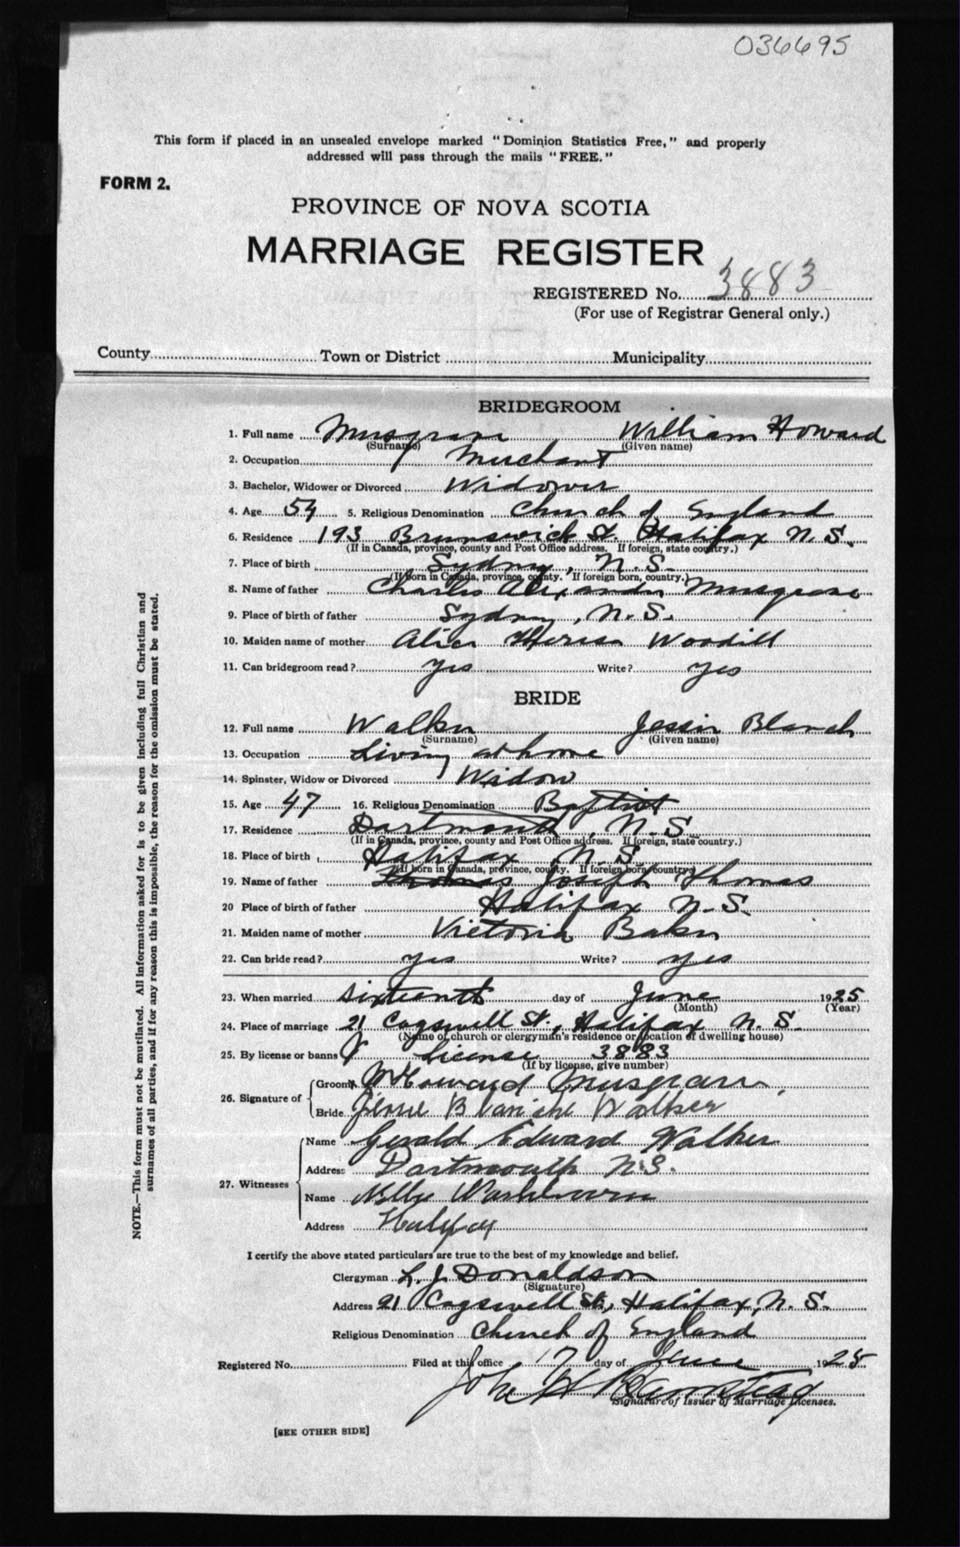 036695
This form if placed in an unsealed envelope marked "Dominion Statistics Free," and properly
addressed will pass through the mails "FREE."
FORM 2.
PROVINCE OF NOVA SCOTIA
MARRIAGE REGISTER
REGISTERED No. 3883
(For use of Registrar General only.)
County Town or District Municipality
BRIDEGROOM
1. Full name Musgrave William Howard
(Surname) (Given name)
2. Occupation Merchant
3. Bachelor, Widower or Divorced Widower
4. Age 54 5. Religious Denomination Church of England
6. Residence 193 Brunswick St. Halifax N.S.
(If in Canada, province, county and Post Office address. If foreign, state country.)
7. Place of birth Sydney, N.S.
(If born in Canada, province, county. If foreign born, country.)
8. Name of father Charles Alexander Musgrave
9. Place of birth of father Sydney, N.S.
10. Maiden name of mother Alice Theresa Woodill
11. Can bridegroom read? Yes Write? yes
BRIDE
12. Full name Walker Jessie Blanch
(Surname) (Given name)
13. Occupation Living at home
14. Spinster, Widow or Divorced Widow
15. Age 47 16. Religious Denomination Baptist
17. Residence Dartmouth, N.S.
(If in Canada, province, county and Post Office address. If foreign, state country.)
18. Place of birth Halifax, N.S.
(If born in Canada, province, county. If foreign born, country)
19. Name of father Thomas Joseph Thomas
20 Place of birth of father Halifax N.S.
21. Maiden name of mother Victoria Baker
22. Can bride read? yes Write? yes
23. When married sixteenth day of June 1925
(Month) (Year)
24. Place of marriage 21 Cogswell St., Halifax N.S.
(Name of church or clergyman's residence or location of dwelling house)
25. By license or banns License 3883
(If by license, give number)
26. Signature of Groom Howard Musgrave
Bride Jessie Blanche Walker
27. Witnesses Name Gerald Edward Walker
Address Dartmouth N.S.
Name Nelly Washbourn
Address Halifax
I certify the above stated particulars are true to the best of my knowledge and belief.
Clergyman L. J. Donaldson
(Signature)
Address 21 Cogswell St., Halifax, N.S.
Religious Denomination Church of England
Registered No. Filed at this office 17 day of June 1925
John H
Signature of Issuer of Marriage Licenses.
[SEE OTHER SIDE]
NOTE.—This form must not be mutilated. All information asked for is to be given including full Christian and
surnames of all parties, and if for any reason this is impossible, the reason for the omission must be stated.